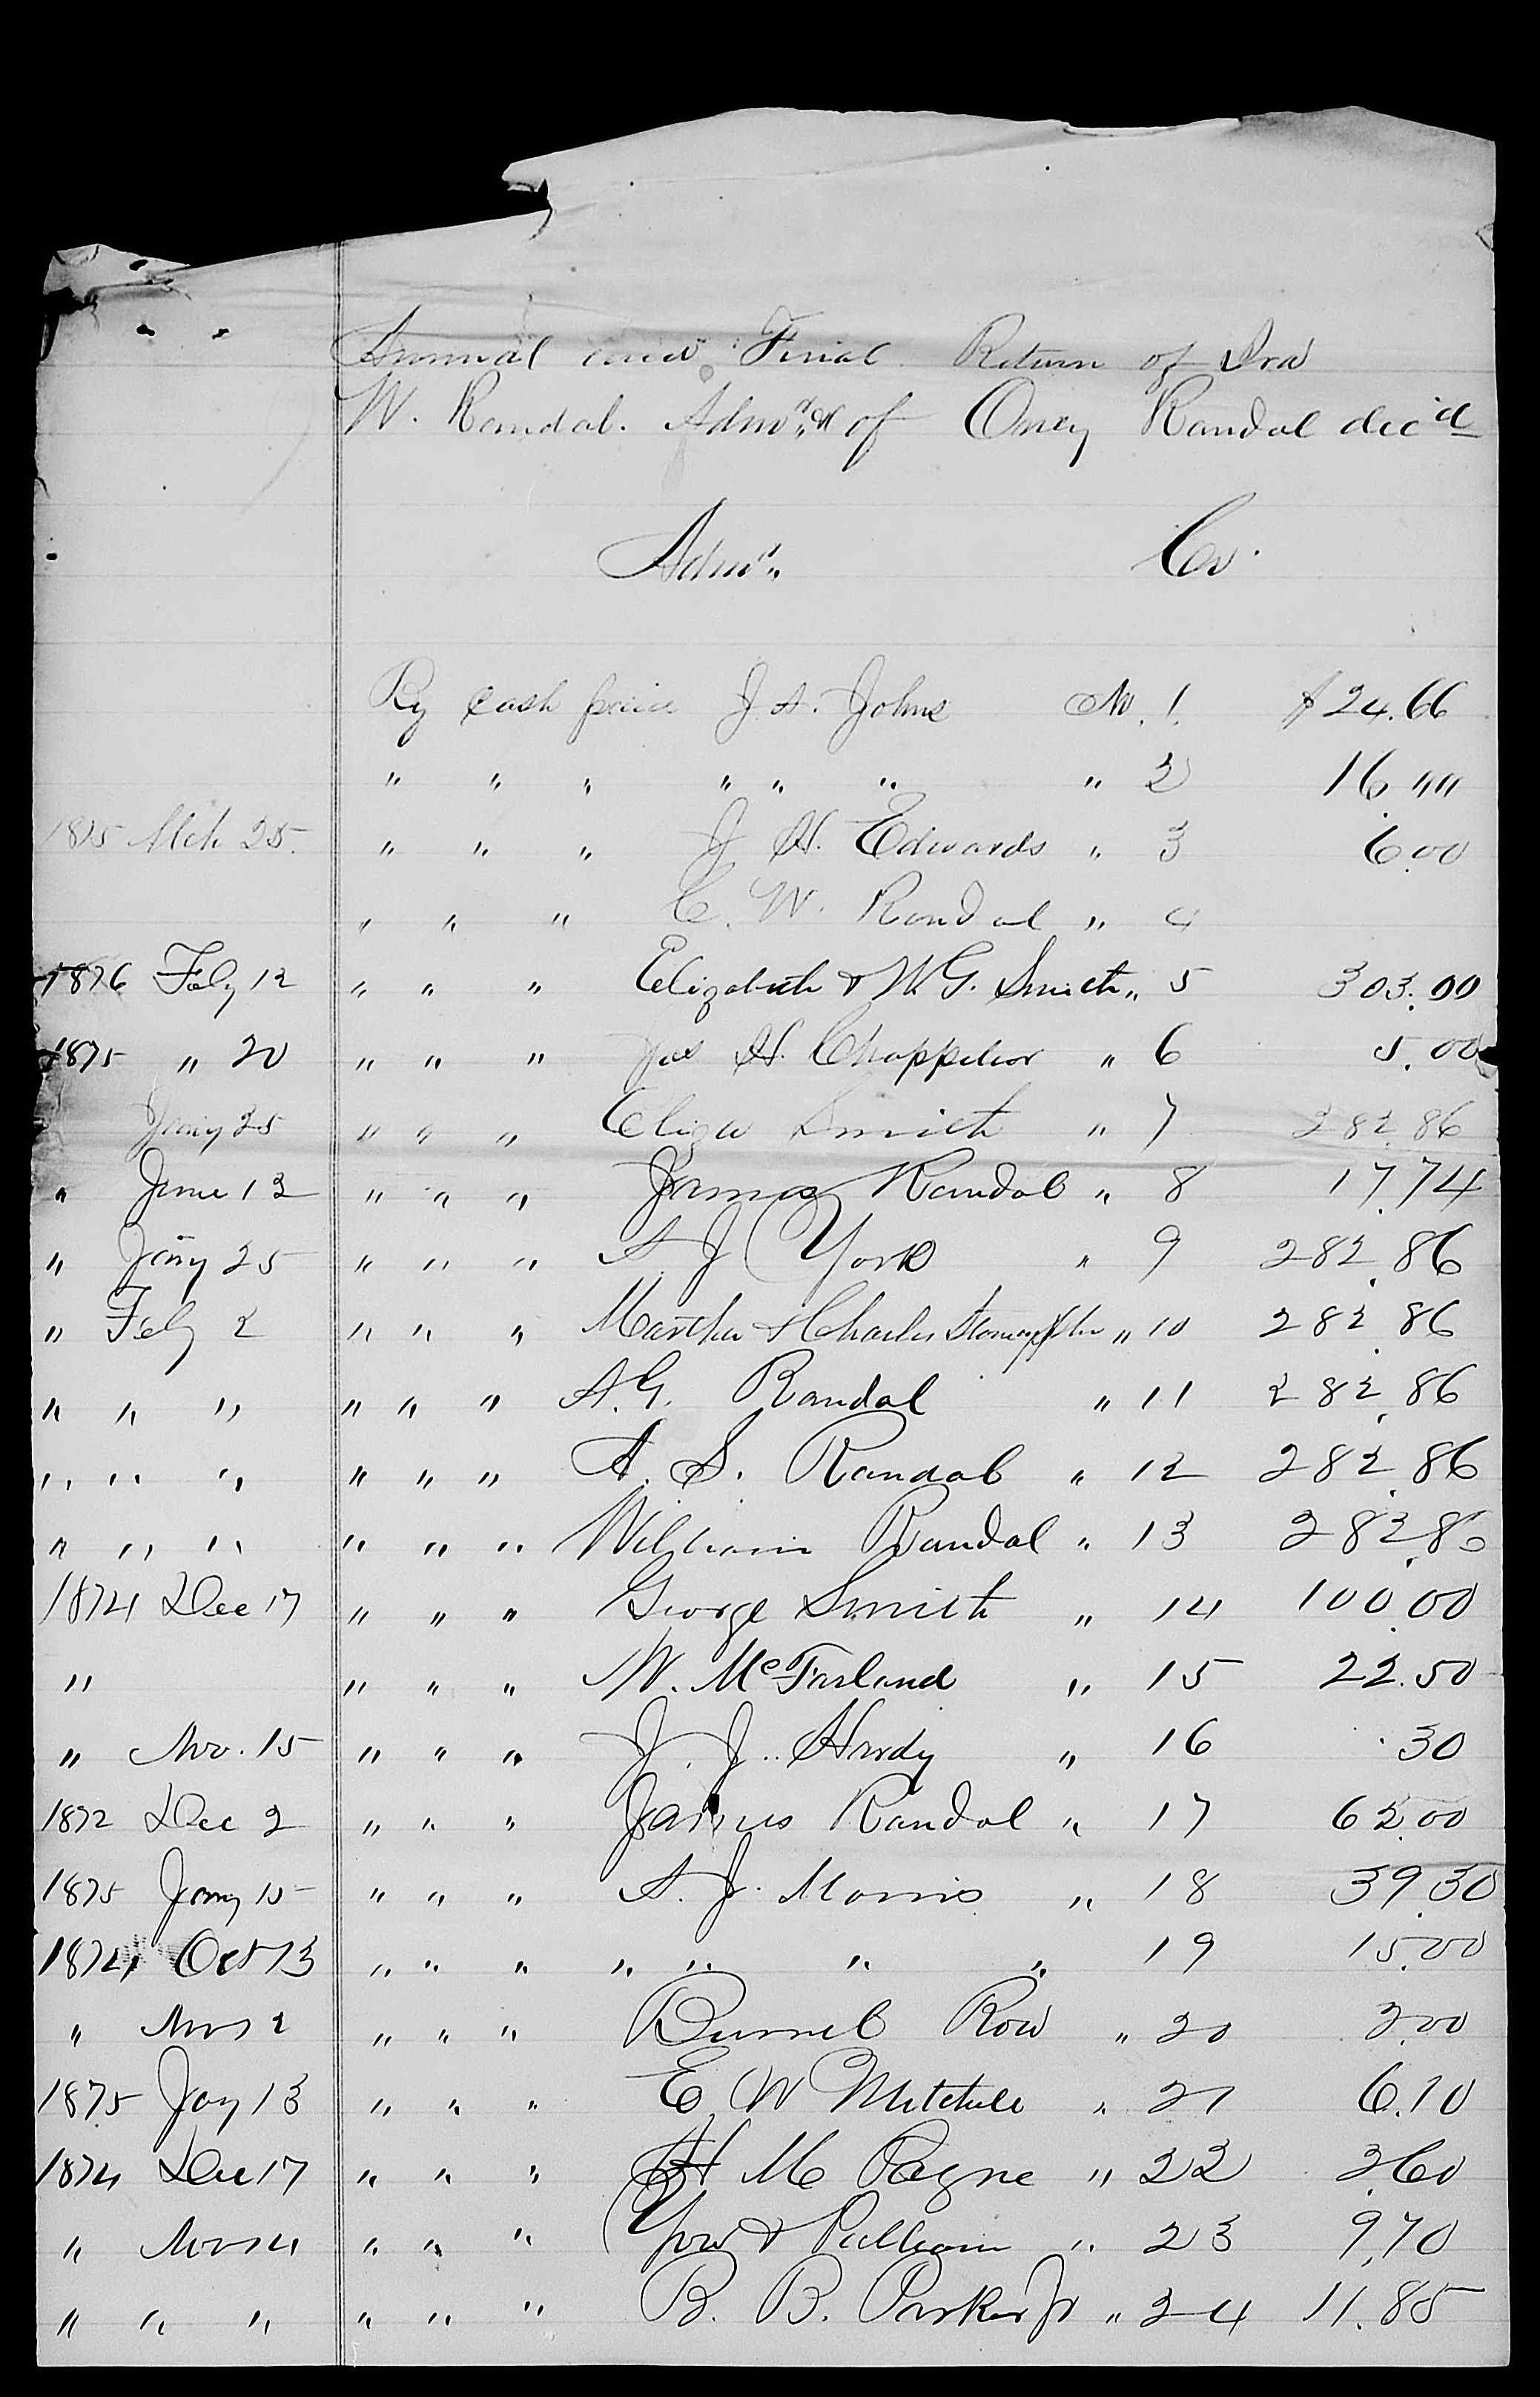 Annual and Final Return of Ira
W. Randal. Adm'r of Oney Randal dec'd
Adm'r Cr.
By cash paid J. A. Johns No. 1. $24.66
" " " " " " " 2 16 ""
1875 Mch 25. " " " J H. Edwards " 3 6.00
" " " C. W. Randal " 4
1876 Feby 12 " " " Elizabeth & W. G. Smith " 5 303.00
1875 " 20 " " " Jas H. Chappelear " 6 5.00
Jany 25 " " " Eliza Smith " 7 282.86
" June 12 " " " James Randal " 8 17.74
" Jany 25 " " " A J York " 9 282.86
" Feby 2 " " " Martha & Charles " 10 282.86
" " " " " " A. G. Randal " 11 282.86
" " " " " " A. S. Randal " 12 282.86
" " " " " " William Randal " 13 282.86
1874 Dec 17 " " " George Smith " 14 100.00
" " " " W. McFarland " 15 22.50
" Nov. 15 " " " J. J. Hardy " 16 .30
1872 Dec 2 " " " James Randal " 17 62.00
1875 Jany 15 " " " A. J. Morris " 18 39.30
1874 Oct 13 " " " " " " " 19 15.00
" Nov 2 " " " Burrel Row " 20 2.00
1875 Jay 13 " " " E W Mitchell " 21 6.10
1874 Dec 17 " " " H M Payne " 22 3.60
" Nov 14 " " " Yow & Pulliam " 23 9.70
" " " " " " B. B. Parker Jr " 24 11.85